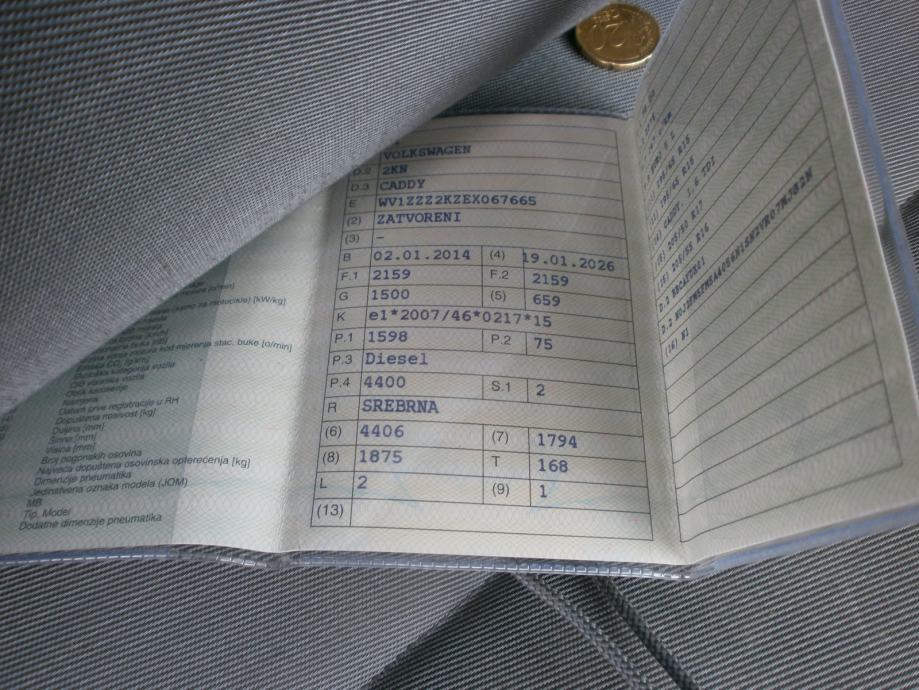 20
VOLKSWAGEN
D.2 2KN
D.3 CADDY
E WV1ZZZ2KZEX067665
(2) ZATVORENI
(3) –
B 02.01.2014 (4) 19.01.2026
F.1 2159 F.2 2159
G 1500 (5) 659
K e1*2007/46*0217*15
P.1 1598 P.2 75
P.3 Diesel
P.4 4400 S.1 2
R SREBRNA
(6) 4406 (7) 1794
(8) 1875 T 168
L 2 (9) 1
(13)
[kW/kg]
kod mjerenja stac. buke [o/min]
CO₂ [g/km]
kategorija vozila
Oblik karoserije
Namjena
Datum prve registracije u RH
Dopuštena nosivost [kg]
Duljina [mm]
Širina [mm]
Visina [mm]
Broj pogonskih osovina
Najveća dopuštena osovinska opterećenja [kg]
Dimenzije pneumatika
Jedinstvena oznaka modela (JOM)
MB
Tip, Model
Dodatne dimenzije pneumatika
195/65 R15
CADDY, 1,6 TDI
205/50 R17
205/55 R16
(16) N1